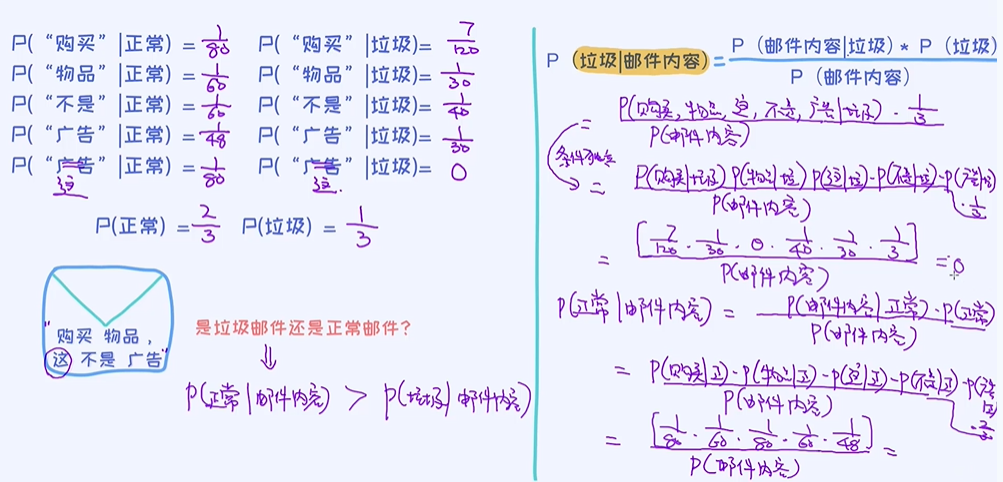 P( “购买” |正常) = 1/80 P( “购买” |垃圾)= 7/120
P( “物品” |正常) = 1/60 P( “物品” |垃圾)= 1/30
P( “不是” |正常) = 1/60 P( “不是” |垃圾)= 1/40
P( “广告” |正常) = 1/48 P( “广告” |垃圾)= 1/30
P( “广告” |正常) = 1/80 P( “广告” |垃圾)= 0
这 这.
P(正常) = 2/3 P(垃圾) = 1/3
"购买 物品，
这 不是 广告"
是垃圾邮件还是正常邮件?
⇓
P(正常|邮件内容) > P(垃圾|邮件内容)
P (垃圾|邮件内容) = P (邮件内容|垃圾) * P (垃圾) / P (邮件内容)
= P(购买,物品,这,不是,广告|垃圾) · 1/3 / P(邮件内容)
条件独立
= P(购买|垃圾) P(物品|垃) P(这|垃)·P(不是|垃)·P(广告|垃) · 1/3 / P(邮件内容)
= [7/120 · 1/30 · 0 · 1/40 · 1/30 · 1/3] / P(邮件内容) = 0
P(正常|邮件内容) = P(邮件内容|正常)·P(正常) / P(邮件内容)
= P(购买|正)·P(物品|正)·P(这|正)·P(不是|正)·P(广告|正) · 2/3 / P(邮件内容)
= [1/80 · 1/60 · 1/80 · 1/60 · 1/48] / P(邮件内容) =